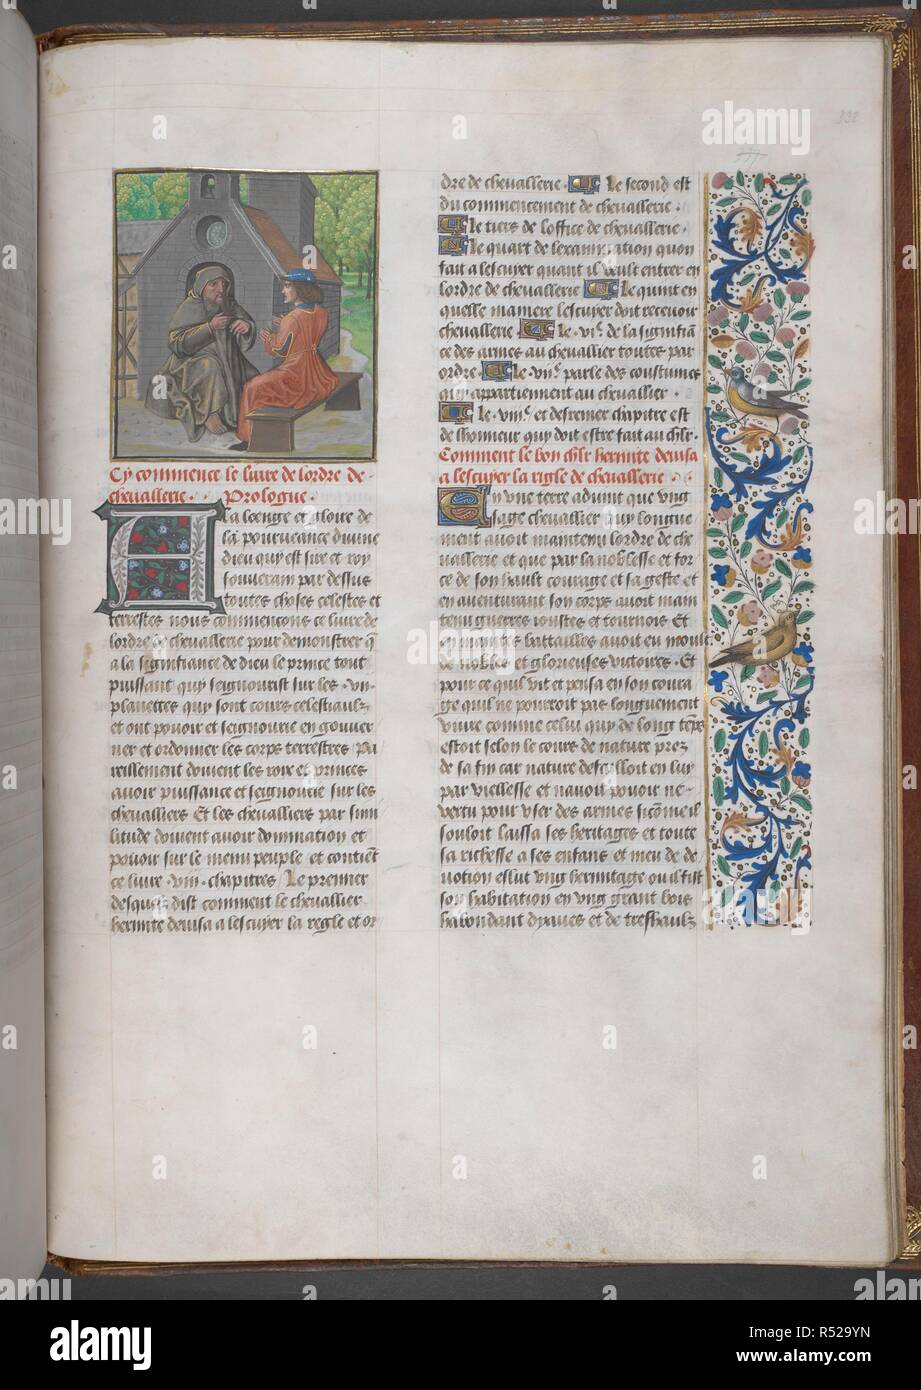 338
Cy commence le liure de lordre de
cheuallerie · Prologue ·
A la loenge et gloire de
la pourueance diuine
dieu quy est sire et roy
souuerain par dessus
toutes choses celestes et
terrestes nous commencons ce liure de
lordre de cheuallerie pour demonstrer q̄
a la signifiance de dieu le prince tout
puissant quy seignourist sur les · vii ·
planettes quy sont cours celestiaulz
et ont pouoir et seignourie en gouuer
ner et ordonner les corps terrestres · Pa
reillement doiuent les roix et princes
auoir puissance et seignourie sur les
cheualliers Et les cheualliers par simi
litude doiuent auoir domination et
pouoir sur le menu peuple et contiēt
ce liure · viii · chapitres / Le premier
desquelz dist comment le cheuallier
hermite deuisa a lescuyer la regle et or
dre de cheuallerie · Le second est
du commencement de cheuallerie ·
Le tiers de loffice de cheuallerie ·
Le quart de lexamination quon
fait a lescuyer quant il veult entrer en
lordre de cheuallerie Le quint en
quelle maniere lescuyer doit receuoir
cheuallerie Le · vi.e de la signifiā
ce des armes au cheuallier toutes par
ordre · Le · vii.e parle des coustumes
quy appartiennent au cheuallier ·
Le · viii.e et derrenier chapitre est
de lhonneur quy doit estre fait au chl̄r ·
Comment le bon chl̄r hermite deuisa
a lescuyer la rigle de cheuallerie ·
En vne terre aduint que vng
sage cheuallier quy longue
ment auoit maintenu lordre de che
uallerie et que par sa noblesse et for
ce de son hault courage et sa geste et
en auenturant son corps auoit main
tenu guerres ioustes et tournois Et
en maintes battailles auoit eu moult
de nobles et glorieuses victoires · Et
pour ce quil vit et pensa en son coura
ge quil ne pouroit pas longuement
viure comme celui quy de long tēps
estoit selon le cours de nature prez
de sa fin car nature defailloit en luy
par viellesse et nauoit pouoir ne
vertu pour vser des armes sicōme il
souloit laissa ses heritages et toute
sa richesse a ses enfans et meu de de
uotion eslut vng hermitage ou il fist
son habitation en vng grant bois
habondant dyaues et de treshaulz
alamy
alamy
Image ID: R529YN
www.alamy.com